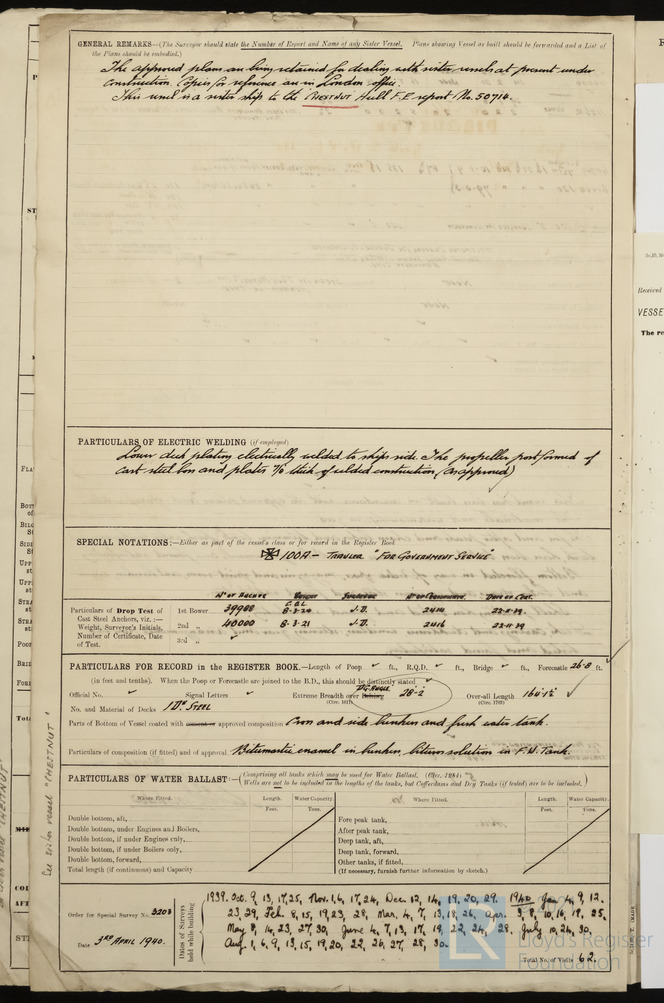 GENERAL REMARKS—(The Surveyor should state the Number of Report and Name of any Sister Vessel. Plans showing Vessel as built should be forwarded and a List of
the Plans should be embodied.)
The approved plans are being retained for dealing with sister vessels at present under
construction. Copies for reference are in London office.
This vessel is a sister ship to the CHESTNUT Hull F.E report No. 50714.
PARTICULARS OF ELECTRIC WELDING (if employed)
Lower deck plating electrically welded to ships side. The propeller post formed of
cast steel boss and plates thick of welded construction (as approved)
SPECIAL NOTATIONS:—Either as part of the vessel's class or for record in the Register Book
100A— TRAWLER "FOR GOVERNMENT SERVICE"
No OF ANCHOR WEIGHT SURVEYOR No OF CERTIFICATE DATE OF CERT.
Particulars of Drop Test of
Cast Steel Anchors, viz.:—
Weight, Surveyor's Initials,
Number of Certificate, Date
of Test.
1st Bower 39988 8-3-20 J.D. 2414 22-11-39
2nd „ 40000 8-3-21 J.D. 2416 22-11-39
3rd „
PARTICULARS FOR RECORD in the REGISTER BOOK.—Length of Poop ft., R.Q.D. ft., Bridge ft., Forecastle 26.8 ft.
(in feet and tenths). When the Poop or Forecastle are joined to the B.D., this should be distinctly stated
Official No. Signal Letters Extreme Breadth over 28-2 Over-all Length 164'1½"
(Circ. 1611) (Circ. 1703)
No. and Material of Decks 1 Dk STEEL
Parts of Bottom of Vessel coated with cement or approved composition Cross and side bunkers and fresh water tank.
Particulars of composition (if fitted) and of approval Bitumastic enamel in bunkers, bitumsolution in F.W. Tank.
PARTICULARS OF WATER BALLAST:—(Comprising all tanks which may be used for Water Ballast. (Circ. 1284)
Wells are not to be included in the lengths of the tanks, but Cofferdams and Dry Tanks (if tested) are to be included.)
Where Fitted. Length. Water Capacity. Where Fitted. Length. Water Capacity.
Feet. Tons. Feet. Tons.
Double bottom, aft, Fore peak tank,
Double bottom, under Engines and Boilers, After peak tank,
Double bottom, if under Engines only, Deep tank, aft,
Double bottom, if under Boilers only, Deep tank, forward,
Double bottom, forward, Other tanks, if fitted,
Total length (if continuous) and Capacity (If necessary, furnish further information by sketch.)
Order for Special Survey No. 3208
Date 3RD APRIL 1940.
Dates of Surveys held while building
1939. Oct. 9, 13, 17, 25, Nov. 1, 6, 17, 24, Dec. 12, 14, 19, 20, 29. 1940 Jan 4, 9, 12.
23, 29, Feb. 8, 15, 19, 23, 28, Mar. 4, 7, 13, 18, 26, Apr. 3, 8, 10, 16, 18, 25,
May 8, 14, 23, 27, 30, June 4, 7, 13, 17, 19, 22, 24, 28. July 10, 24, 30,
Aug. 1, 6, 9, 13, 15, 19, 20, 22, 26, 27, 28, 30.
Total No. of Visits 62.
See sister vessel "CHESTNUT"
Lloyd's Register
Foundation
LR
Received
VESSE
The re